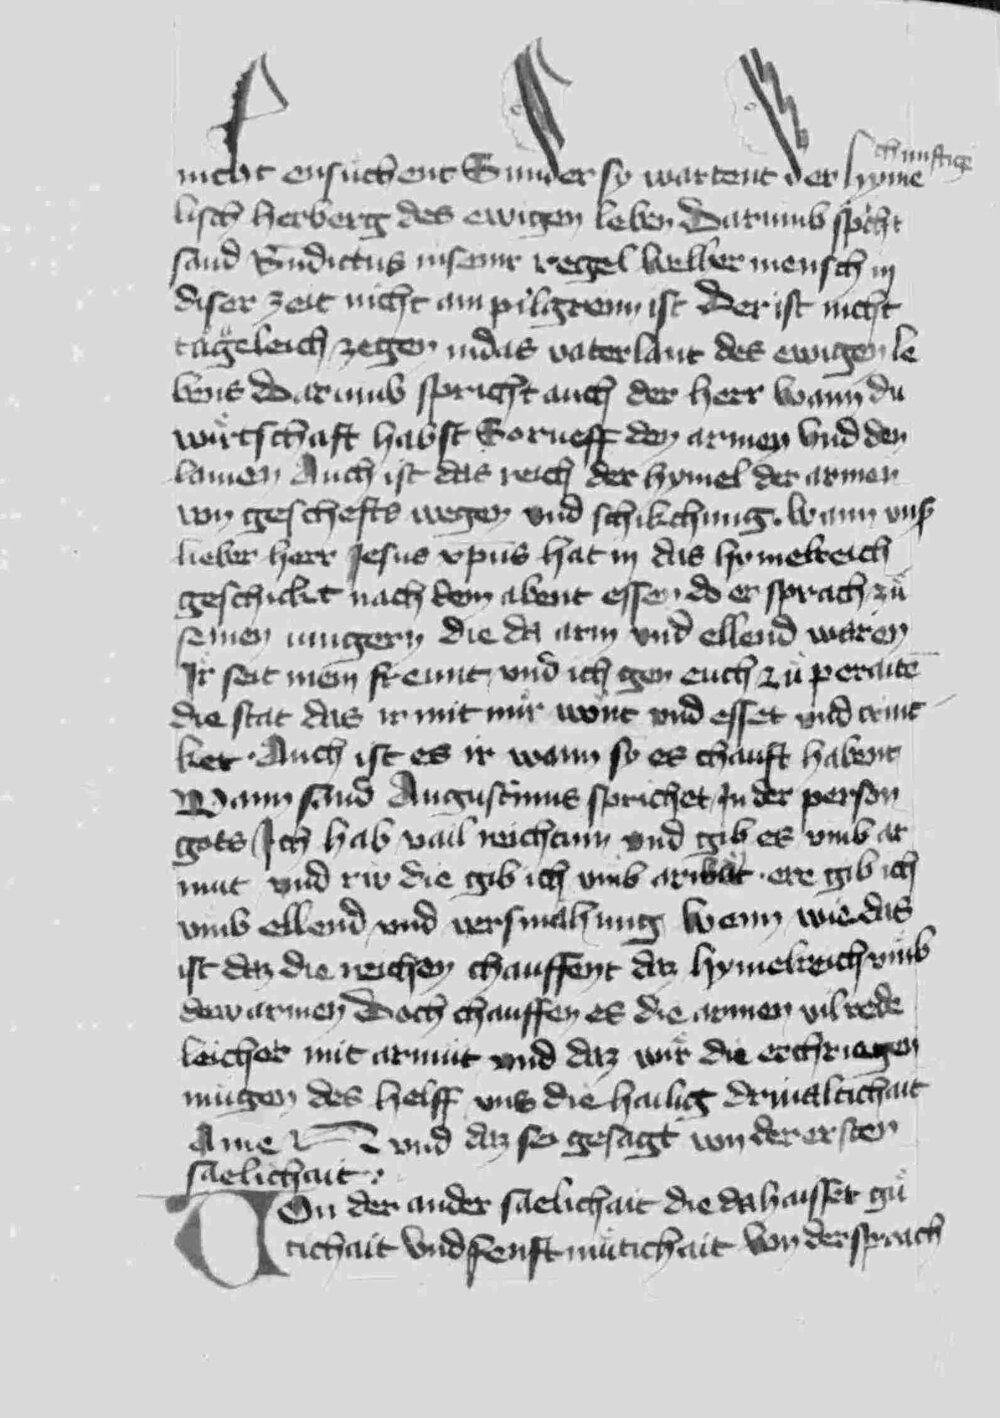 chunftige
nicht ensuchent Sunder sy wartent der hyme
lisch herberg des ewigen leben Darumb spcht
sand Bndictus in seinr regel welher mensch in
diser zeit nicht ain pilgreim ist Der ist nicht
tägeleich zegen in das vaterlant des ewigen le
bens Darumb spricht auch der herr wann du
wůrtschaft habst So rueff den armen vnd den
lamen Auch ist das reich der hymel der armen
von geschefts wegen vnd schikchung. Wann vnß
lieber herr Jesus xpūs hat in das hymelreich
geschickt nach dem abent essen do er sprach zů
seinen iungern die da arm vnd ellend waren
Ir seit mein freunt vnd ich gen euch zů peraitē
die stat das ir mit mir wont vnd esset vnd trint
ket. Auch ist es ir wann sy es chauft habent
Wann sand Augustinus sprichet In der person
gots Ich hab vail reichtum vnd gib es vmb ar
mut vnd rw die gib ich vmb arbait. ere gib ich
vmb ellend vnd versmahung Wenn wie das
ist daz die reichen chauffent daz hymelreich vmb
dew armen Doch chauffen es die armen vil rede
leicher mit armut vnd daz wir die erchriegen
mugen des helff vns die hailig driualtichait
Ame vnd daz sey gesagt von der ersten
saelichait.
Von der ander saelichait die da haisset gů
tichait vnd senftmůtichait Von der sprach